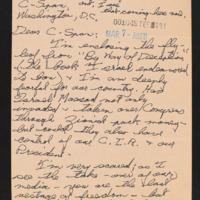 C-Span,
Washington, D.C.
MAR 7 - REC'D
Dear C-Span:
I'm enclosing the fly-
leaf from "By Way of Deception"
(The book Israel
to ban) - I'm an deeply
fearful for our country. Has
Israeli Mossad not only
taken over Congress
through Zionist pack money -
but control they also have
control of our C.I.A. and our
President.
I'm very scared; as I
see the take-over of our
media - you are the last
vestage of freedom - but